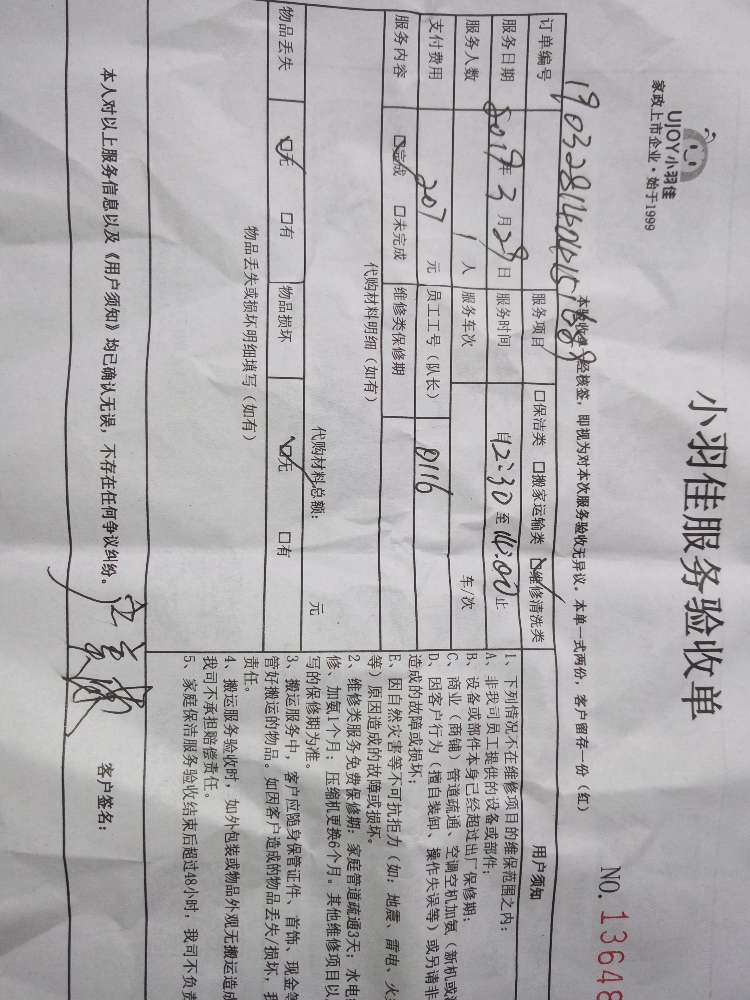 UJOY小羽佳
家政上市企业·始于1999
小羽佳服务验收单
NO. 13648
本验收单一经核签，即视为对本次服务验收无异议。本单一式两份，客户留存一份（红）
订单编号
服务项目 □保洁类 □搬家运输类 ☑维修清洗类
服务日期 2019年3月29日 服务时间 自12:30至14:00止
服务人数 1人 服务车次 车/次
支付费用 207元 员工工号（队长） 0116
服务内容 ☑完成 □未完成 维修类保修期
代购材料明细（如有）
代购材料总额： 元
物品丢失 ☑无 □有 物品损坏 ☑无 □有
物品丢失或损坏明细填写（如有）
用户须知
1、下列情况不在维修项目的维保范围之内：
A、非我司员工提供的设备或部件；
B、设备或部件本身已经超过出厂保修期；
C、商业（商铺）管道疏通、空调空机加氨（新机或
D、因客户行为（擅自装卸、操作失误等）或另请非
造成的故障或损坏；
E、因自然灾害等不可抗拒力（如：地震、雷电、火
等）原因造成的故障或损坏。
2、维修类服务免费保修期：家庭管道疏通3天；水电
修、加氨1个月；压缩机更换6个月。其他维修项目以
写的保修期为准。
3、搬运服务中，客户应随身保管证件、首饰、现金等
管好搬运的物品。如因客户造成的物品丢失/损坏，我
责任。
4、搬运服务验收时，如外包装或物品外观无搬运造成
我司不承担赔偿责任。
5、家庭保洁服务验收结束后超过48小时，我司不负责
本人对以上服务信息以及《用户须知》均已确认无误，不存在任何争议纠纷。
客户签名：